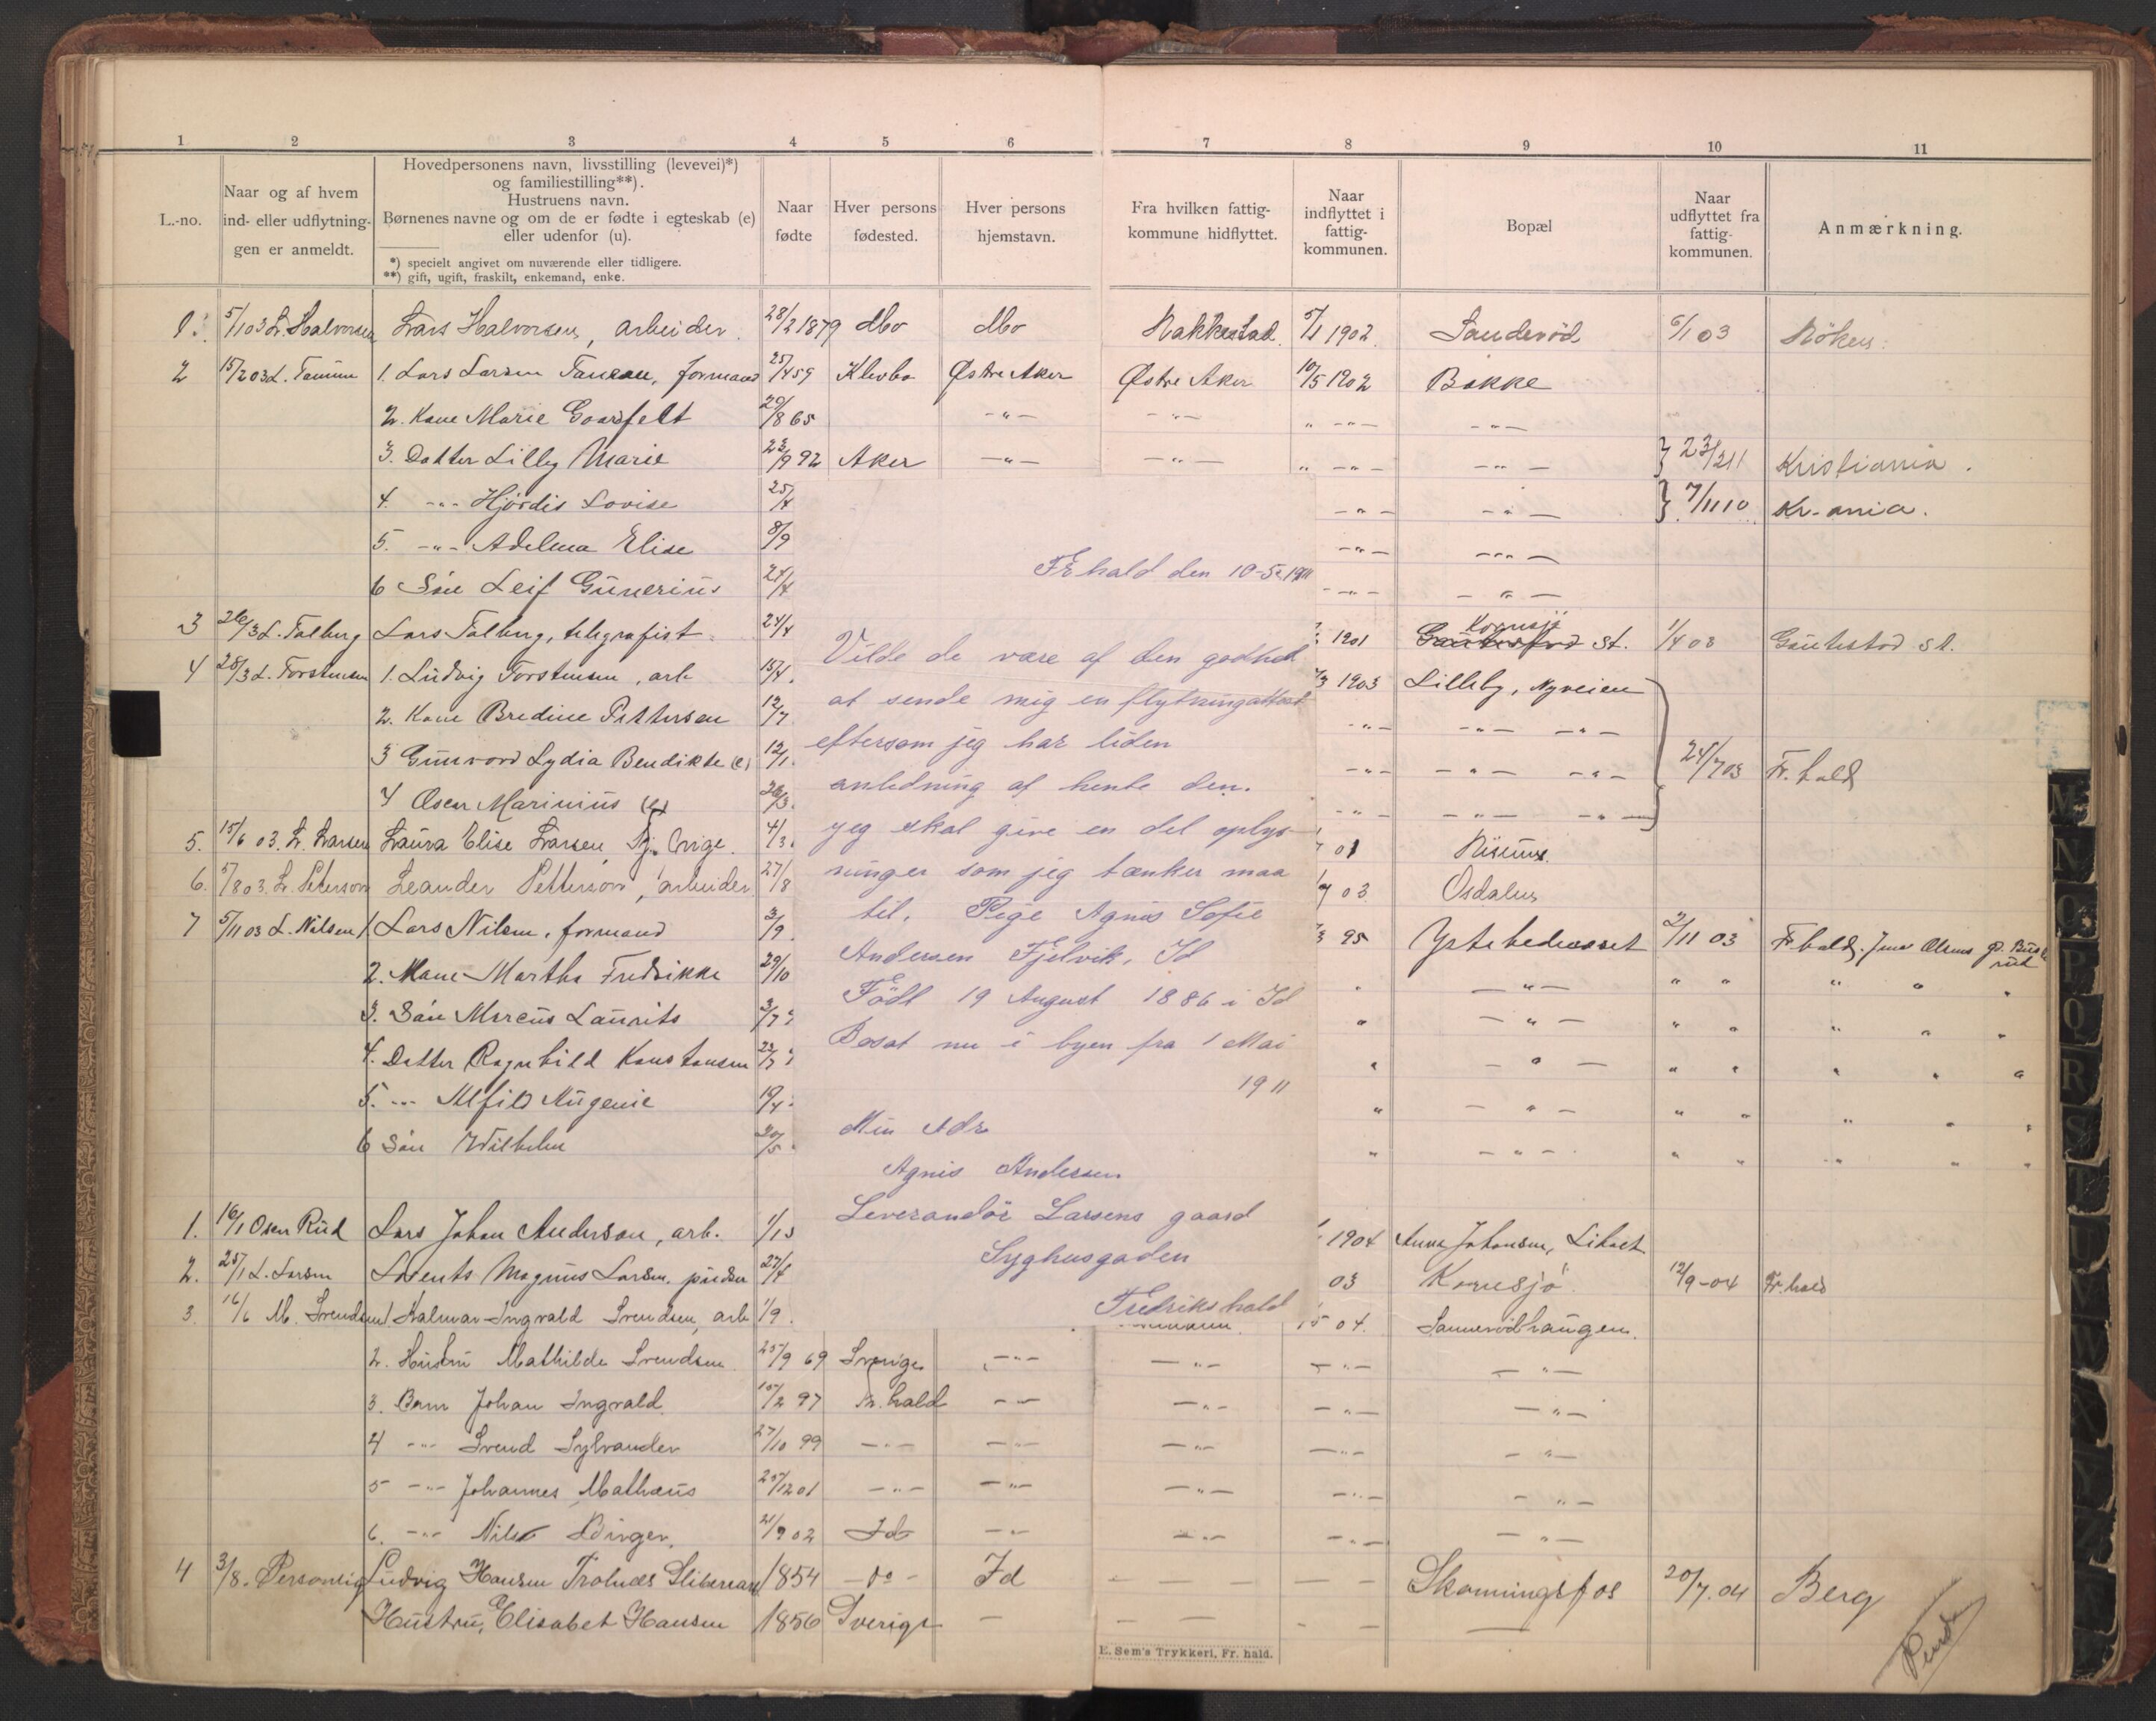 1 2 3 4 5 6 7 8 9 10 11
L.-no.
Naar og af hvem
ind- eller udflytnin-
gen er anmeldt.
Hovedpersonens navn, livsstilling (levevei)*)
og familiestilling**).
Hustruens navn.
Børnenes navne og om de er fødte i egteskab (e)
eller udenfor (u).
*) specielt angivet om nuværende eller tidligere.
**) gift, ugift, fraskilt, enkemand, enke.
Naar
fødte
Hver persons
fødested.
Hver persons
hjemstavn.
Fra hvilken fattig-
kommune hidflyttet.
Naar
indflyttet i
fattig-
kommunen.
Bopæl
Naar
udflyttet fra
fattig-
kommunen.
Anmærkning.
1. 5/1 03 L. Halvorsen Lars Halvorsen, arbeider. 28/2 1879 Mo Mo Rakkestad 5/1 1902. Sanderöd 6/1 03 Röken.
2 15/2 03 L. 1. Lars Larsen formand 25/4 59 Østre Aker Østre Aker 10/5 1902 Bakke
2. Kone Marie 20/8 65 -"- -"- " -"- -"-
3. Datter Lilly Marie 23/9 92 Aker -"- -"- " -"- -"- } 23/2 11 Kristiania.
4. -"- Hjördis Lovise 25/4 -"- -"- } 7/11 10 Kr-ania.
5. -"- Adelma Elise 8/9 -"- -"-
6 Sön Leif Gunerius 24/4 -"- -"-
3 26/3 L. Folberg Lars Folberg, telegrafist 24/4 1901 Kornsjö St. 1/4 03 Gautestad St.
4 28/3 L. Torstensen 1. Ludvig Torstensen, arb 15/4. 3 1903 Lilleby, Nyveien
2. Kone Bredine Pettersen 12/7. -"- -"- -"-
3 Gunvord Lydia Bendikte (e) 12/1. -"- -"- -"- 24/7 03 Fr.hald
4 Oscar Marinius (e) 26/3. -"- -"- -"-
5. 15/6 03. L. Larsen Laura Elise Larsen, 4/3. 01
6. 5/8 03. L. Peterson Leander Petterson, arbeider 27/8 03 Osdalen
7 5/11 03 L. Nilsen 1. Lars Nilsen, formand 3/9. 3 95 2/11 03 Fr.hald,
2. Kone Martha Fredrikke 29/10 " -"- " " " " "
3. Sön Marcus Laurits 3/7 " -"- " " " " "
4. Datter Ragnhild 23/7 " -"- " " " " "
5. -"- 19/4. " -"- " " " " "
6 Sön Wilhelm 20/5. " -"- " " " " "
1. 16/1 Lars Johan Anderson, arb. 1904 Anna Johansen,
2. 25/1 L. Larsen Lorents Magnus Larsen, 27/4 03 Kornsjö 12/9-04 Fr.hald
3. 16/6 M. Svendsen 1 Halmar Ingvald Svendsen, arb 1/9. 04. Sannerödhaugen.
2. Hustru Mathilde Svendsen. 25/9 69 Sverige -"- -"- -"- -"-
3. Barn Johan Ingvald. 15/2 97 Fr. hald -"- -"- -"- -"-
4 -"- Svend Sylvander 27/10 99 -"- -"- -"- -"- -"-
5 -"- Johannes Mathæus 25/12 01 -"- -"- -"- -"- -"-
6. -"- Nils 21/9 02 Id -"- -"- -"- -"-
4 3/8. Personlig Ludvig Hansen 1854 -do- Id — — — — Skonningsfos 20/7.04 Berg
Hustru, Elisabet Hansen 1856 Sverige — — — - - —
E. Sem's Trykkeri, Fr. hald.
Frhald den 10-5-1911
Vilde de være af den godhed
at sende mig en flytningattest
eftersom jeg har liden
anledning af hente den.
jeg skal give en del oplys-
ninger som jeg tænker maa
til. Pige Agnes Sofie
Andersen Fjelvik, Id
Födt 19 August 1886 i Id
Bosat nu i byen fra 1 Mai
1911
Min Adr
Agnes Andersen
Leverandör Larsens gaard
Syghusgaden
Fredrikshald
M
N
O
P
Q
R
S
T
U
V
W
X
Y
Z